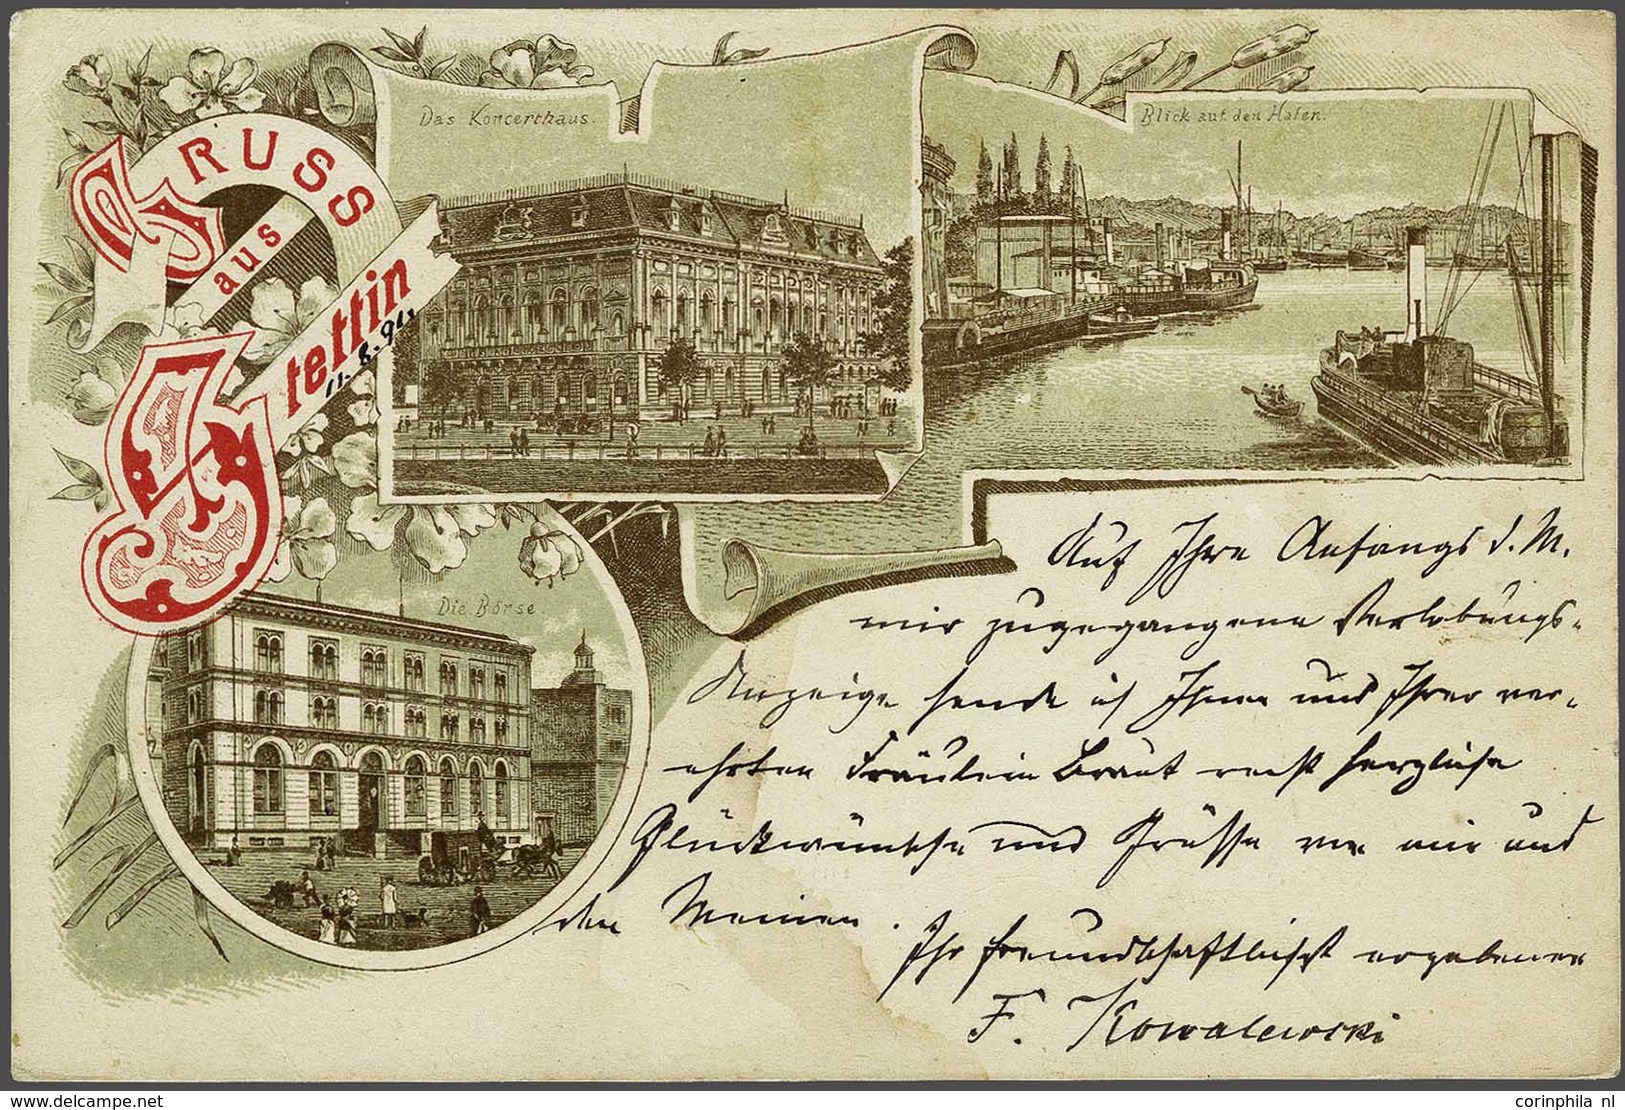 GRUSS
aus
Stettin
11.8.92.
Das Koncerthaus.
Blick auf den Hafen.
Die Börse.
Auf Ihre Anfangs d. M.
mir zugegangene Verlobungs-
Anzeige sende ich Ihnen und Ihrer ver-
ehrten Fräulein Braut recht herzliche
Glückwünsche und Grüsse von mir und
den Meinen.
Ihr freundschaftlichst ergebener
F. Kowalewski
www.delcampe.net
corinphila nl